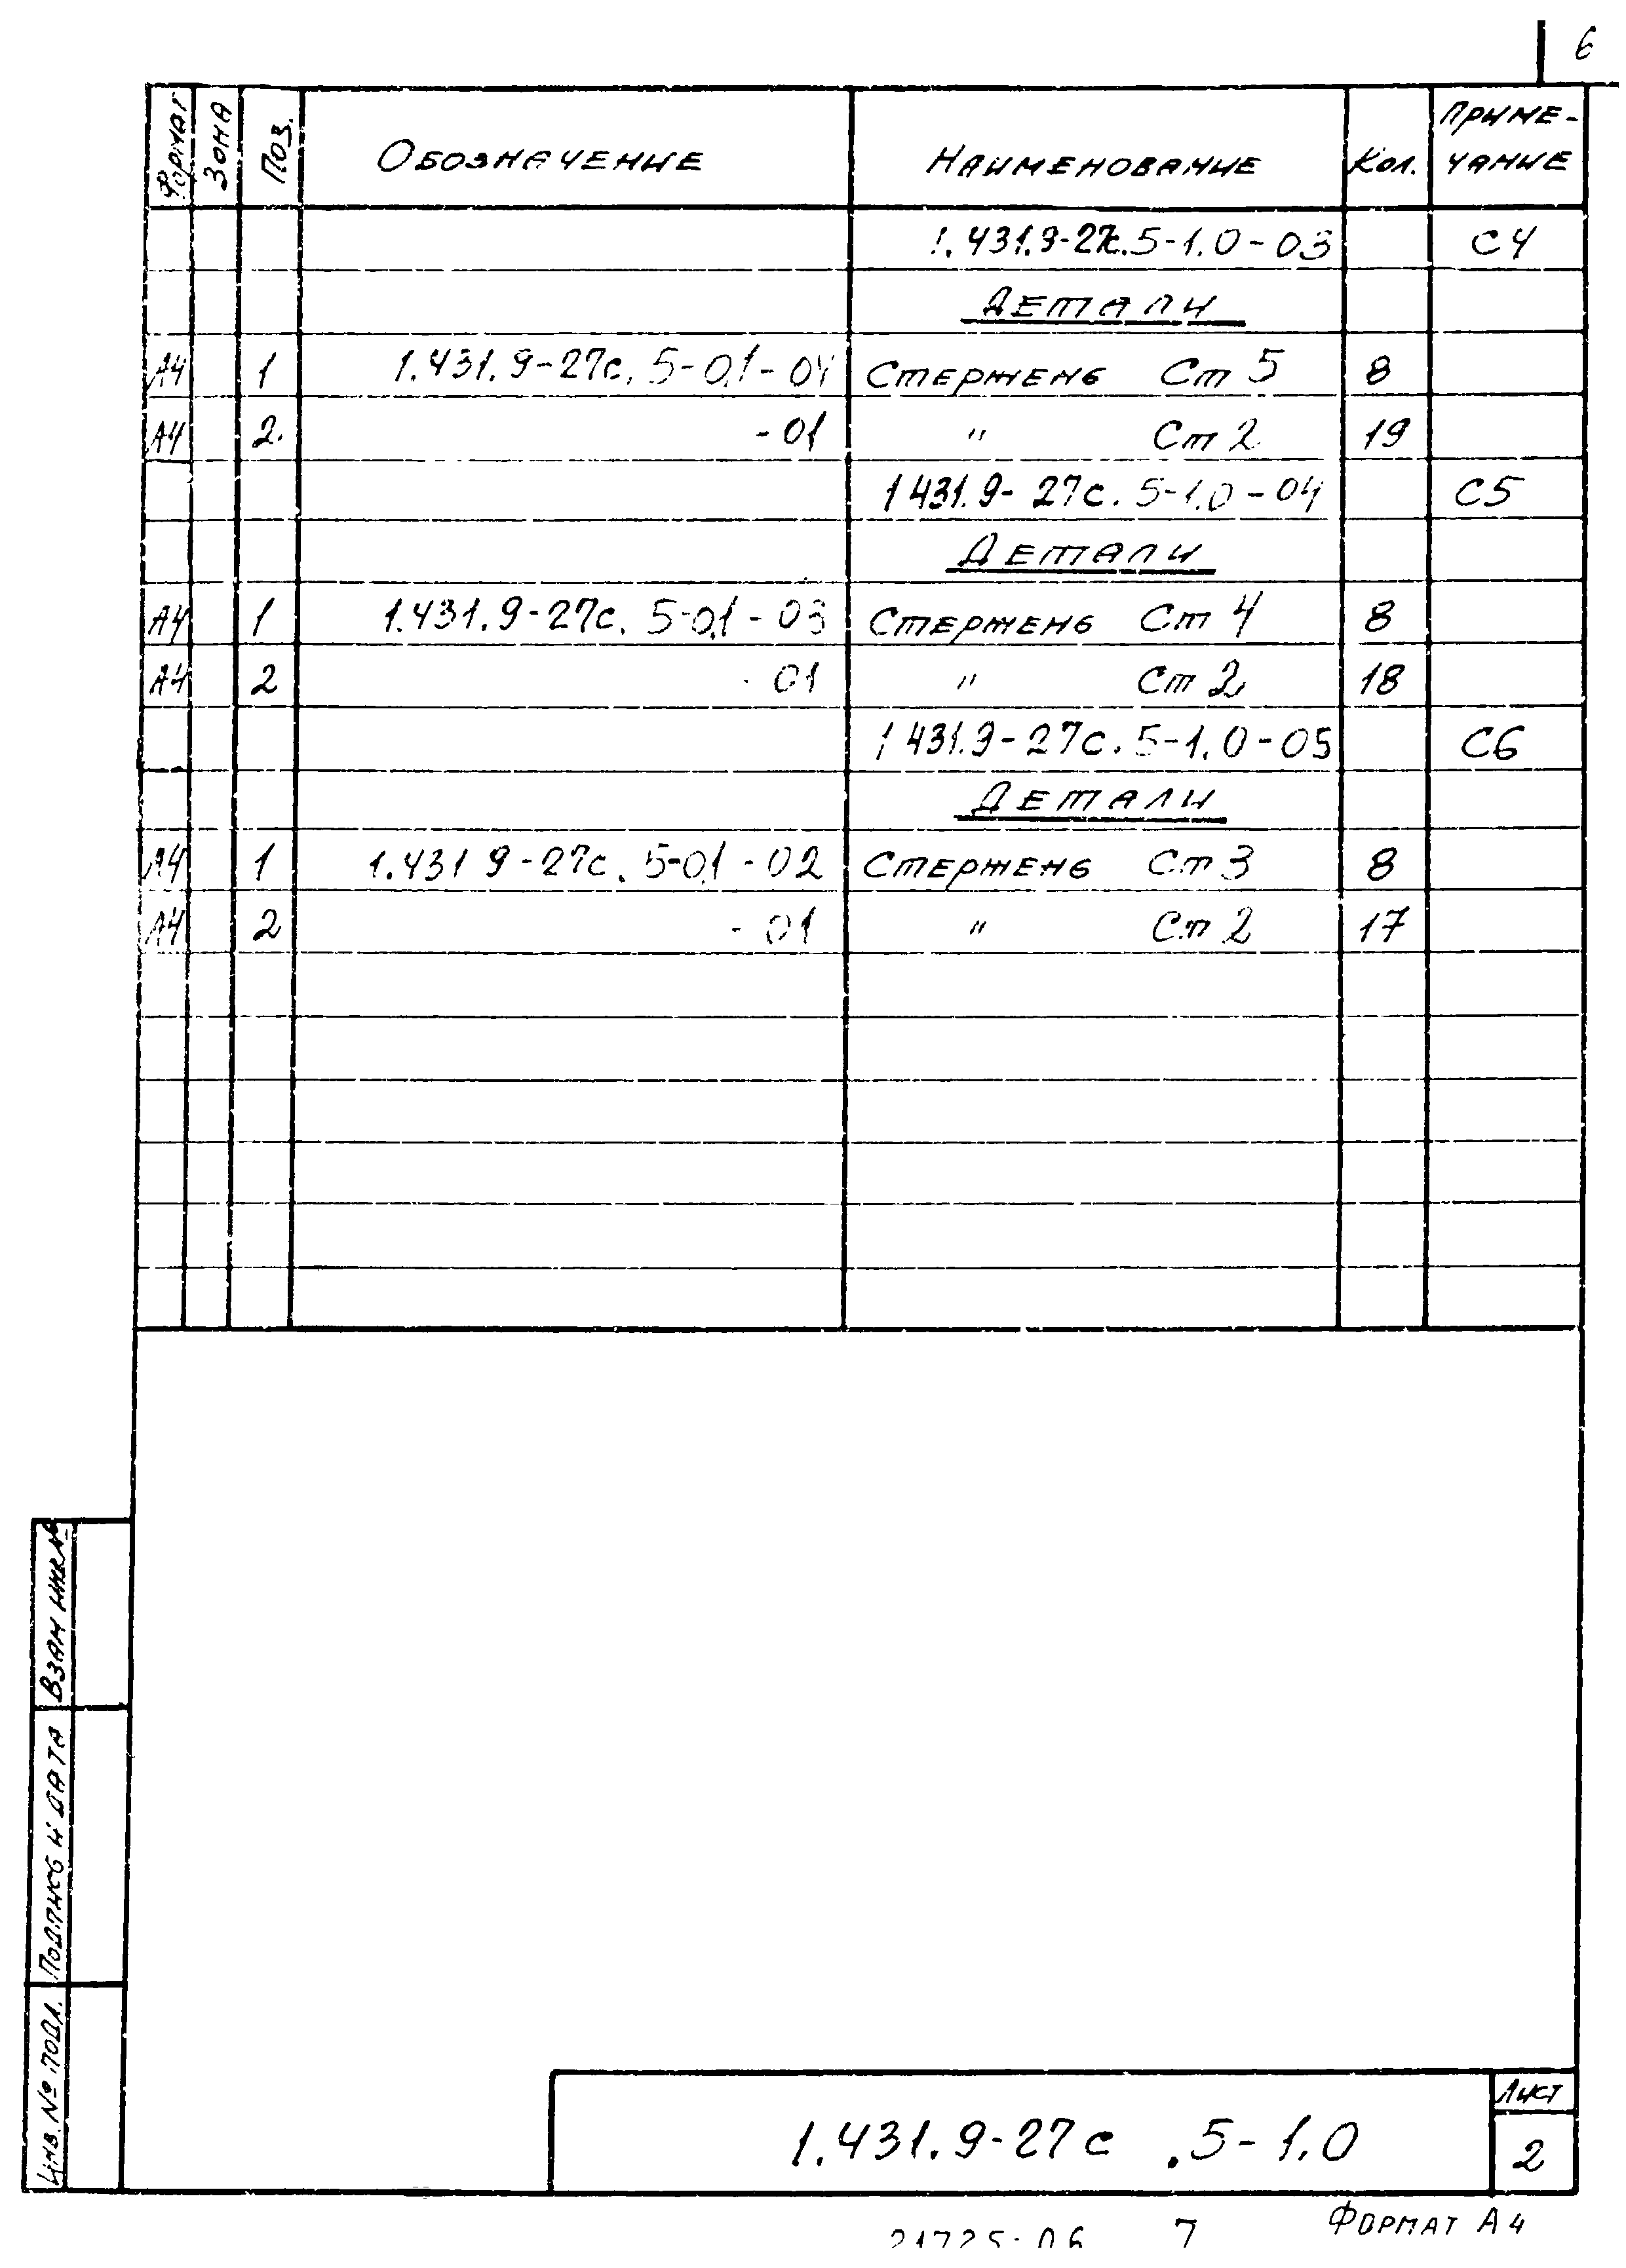 6
Формат Зона Поз. Обозначение Наименование Кол. Приме-
чание
1.431.9-27с.5-1.0-03 С4
Детали
А4 1 1.431.9-27с.5-0.1-04 Стержень Ст 5 8
А4 2 -01 " Ст 2 19
1.431.9-27с.5-1.0-04 С5
Детали
А4 1 1.431.9-27с.5-0.1-03 Стержень Ст 4 8
А4 2 -01 " Ст 2 18
1.431.9-27с.5-1.0-05 С6
Детали
А4 1 1.431.9-27с.5-0.1-02 Стержень Ст 3 8
А4 2 -01 " Ст 2 17
Взам инв №
Подпись и дата
Инв. № подл.
1.431.9-27с .5-1.0
Лист
2
21725-06 7 Формат А4